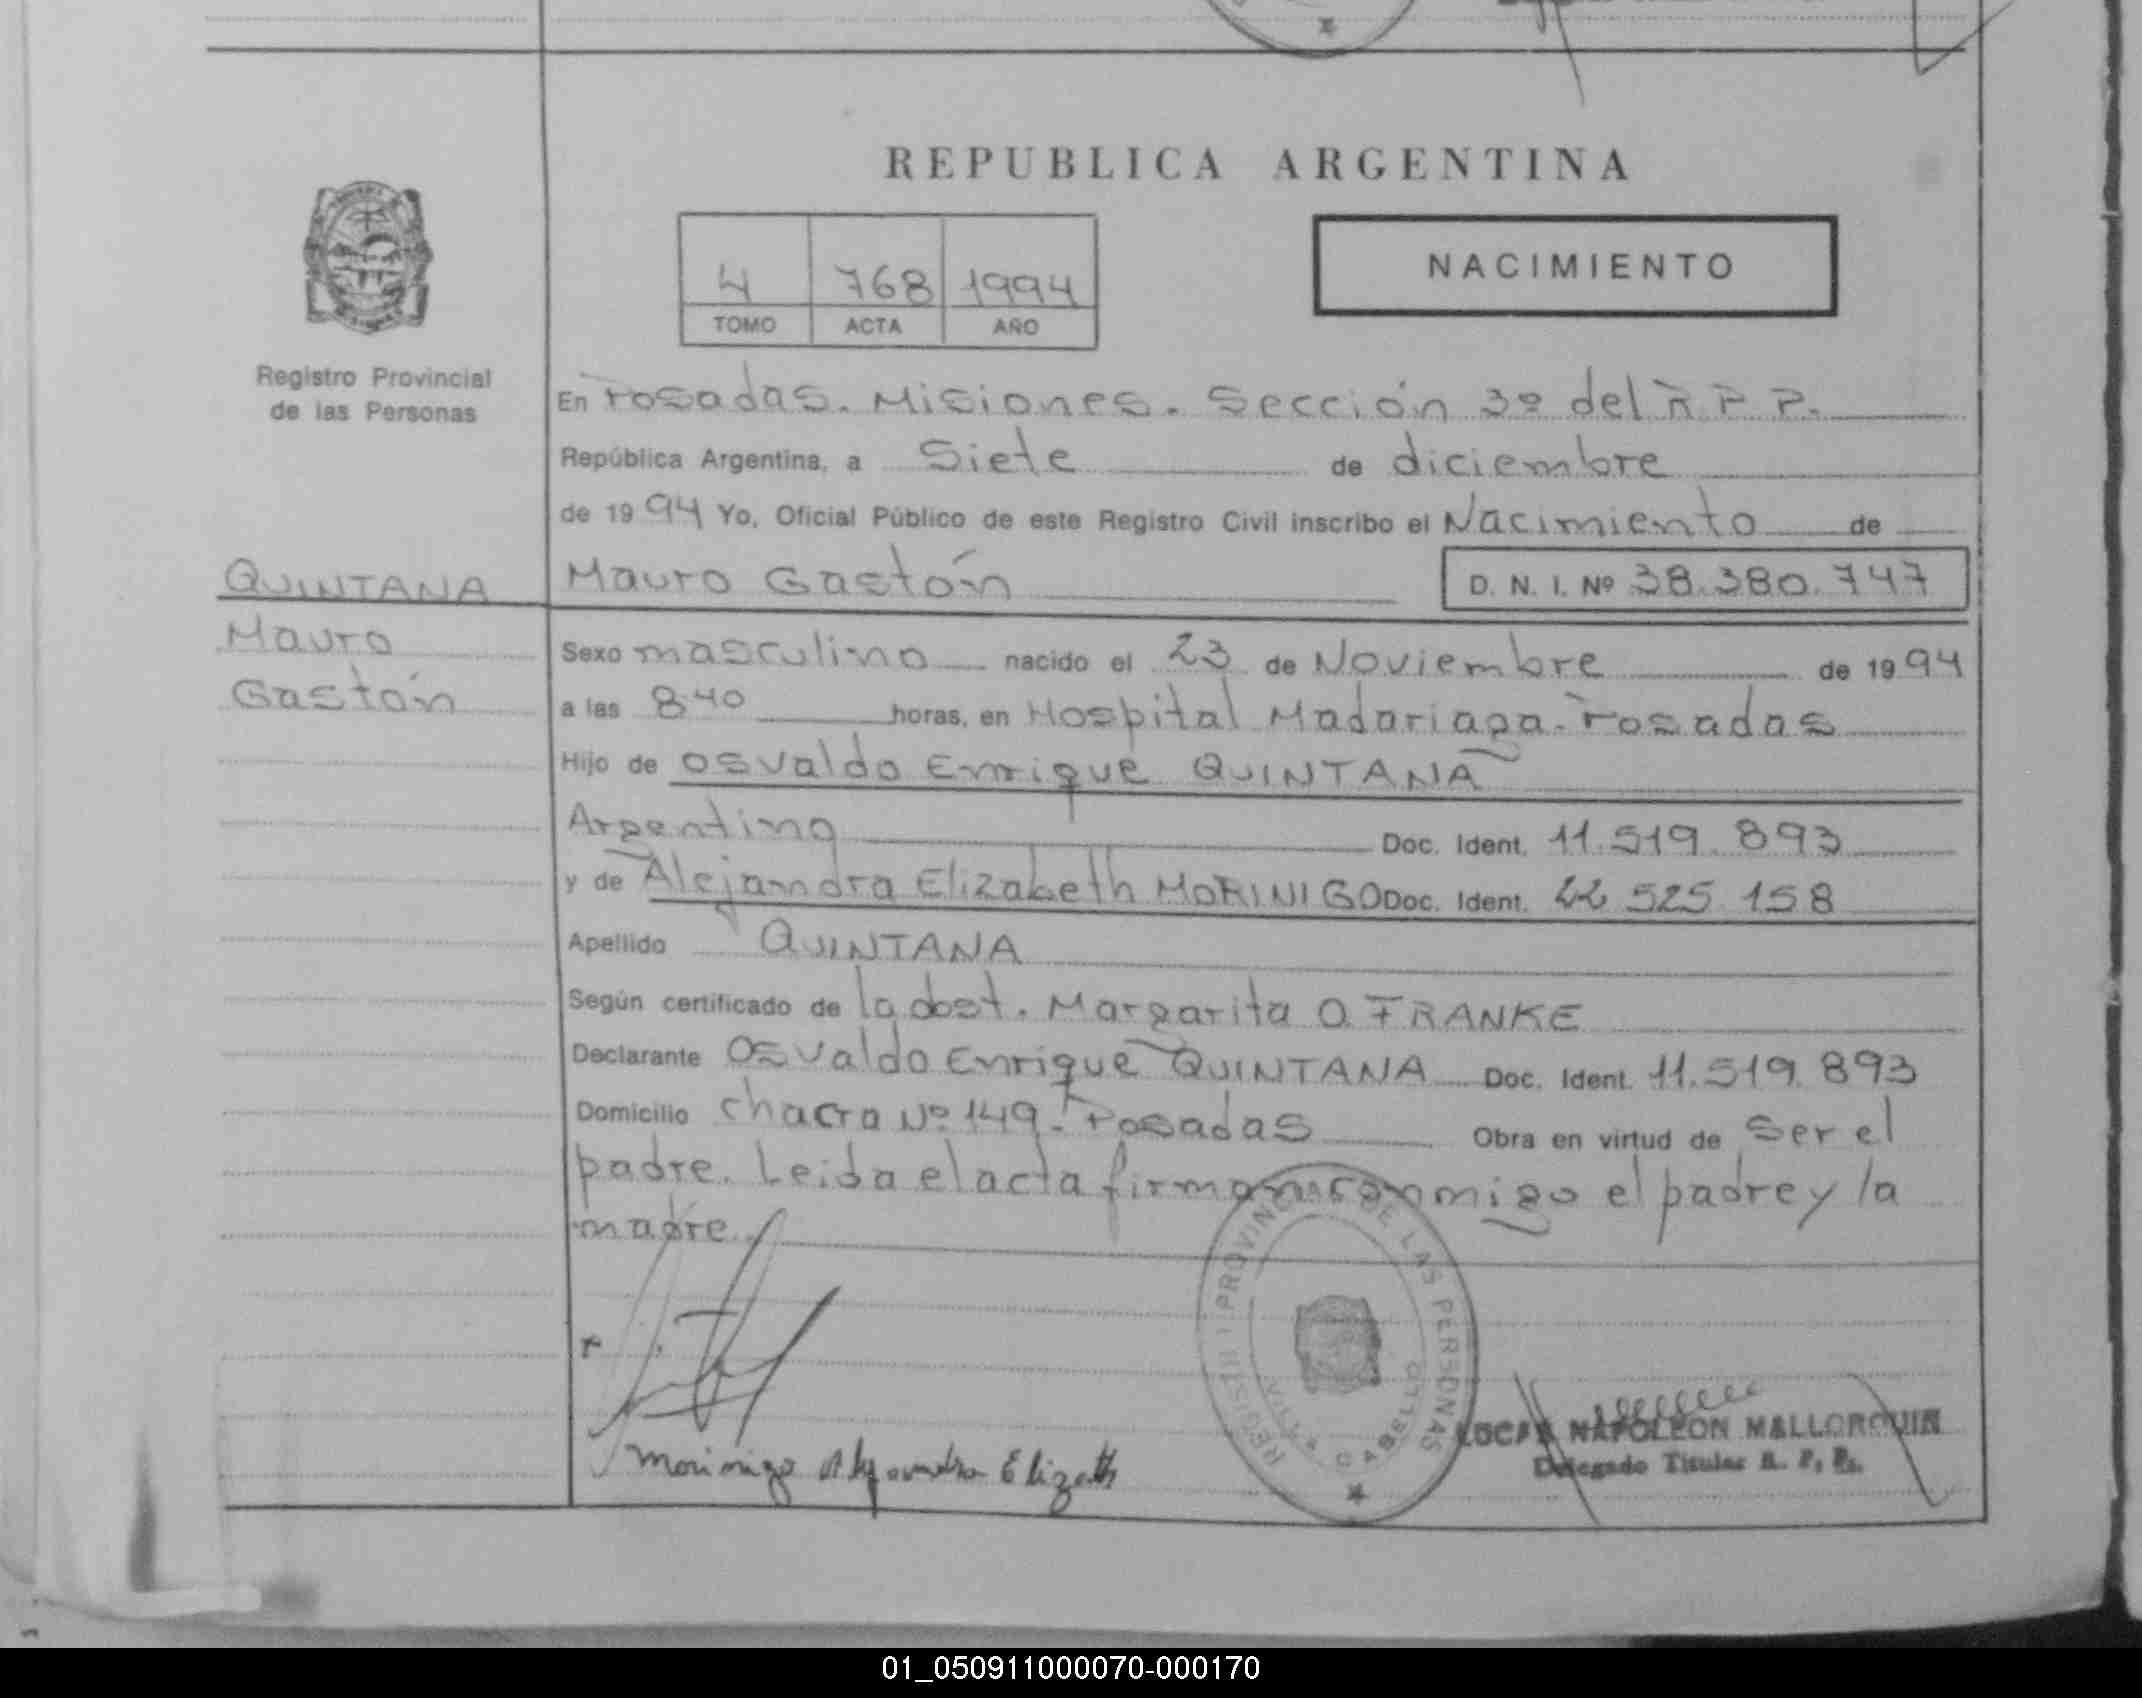 REPUBLICA ARGENTINA
4 768 1994
TOMO ACTA AÑO
NACIMIENTO
Registro Provincial
de las Personas
En Posadas. Misiones. Sección 3º del R P P.
República Argentina, a Siete de diciembre
de 1994 Yo, Oficial Público de este Registro Civil inscribo el Nacimiento de
QUINTANA
Mauro
Gastón
Mauro Gastón D. N. I. Nº 38.380.747
Sexo masculino nacido el 23 de Noviembre de 1994
a las 8.40 horas, en Hospital Madariaga - Posadas
Hijo de Osvaldo Enrique QUINTANA
Argentino Doc. Ident. 11.519.893
y de Alejandra Elizabeth MORINIGO Doc. Ident. 22 525 158
Apellido QUINTANA
Según certificado de la obst. Margarita O. FRANKE
Declarante Osvaldo Enrique QUINTANA Doc. Ident. 11.519.893
Domicilio chacra Nº 149 - Posadas Obra en virtud de Ser el
padre. Leida el acta firman conmigo el padre y la
madre.
REGISTRO PROVINCIAL DE LAS PERSONAS
VILLA CABELLO
Morinigo Alejandra Elizabeth
LUCAS NAPOLEON MALLORQUIN
Delegado Titular R. P. P.
01_050911000070-000170